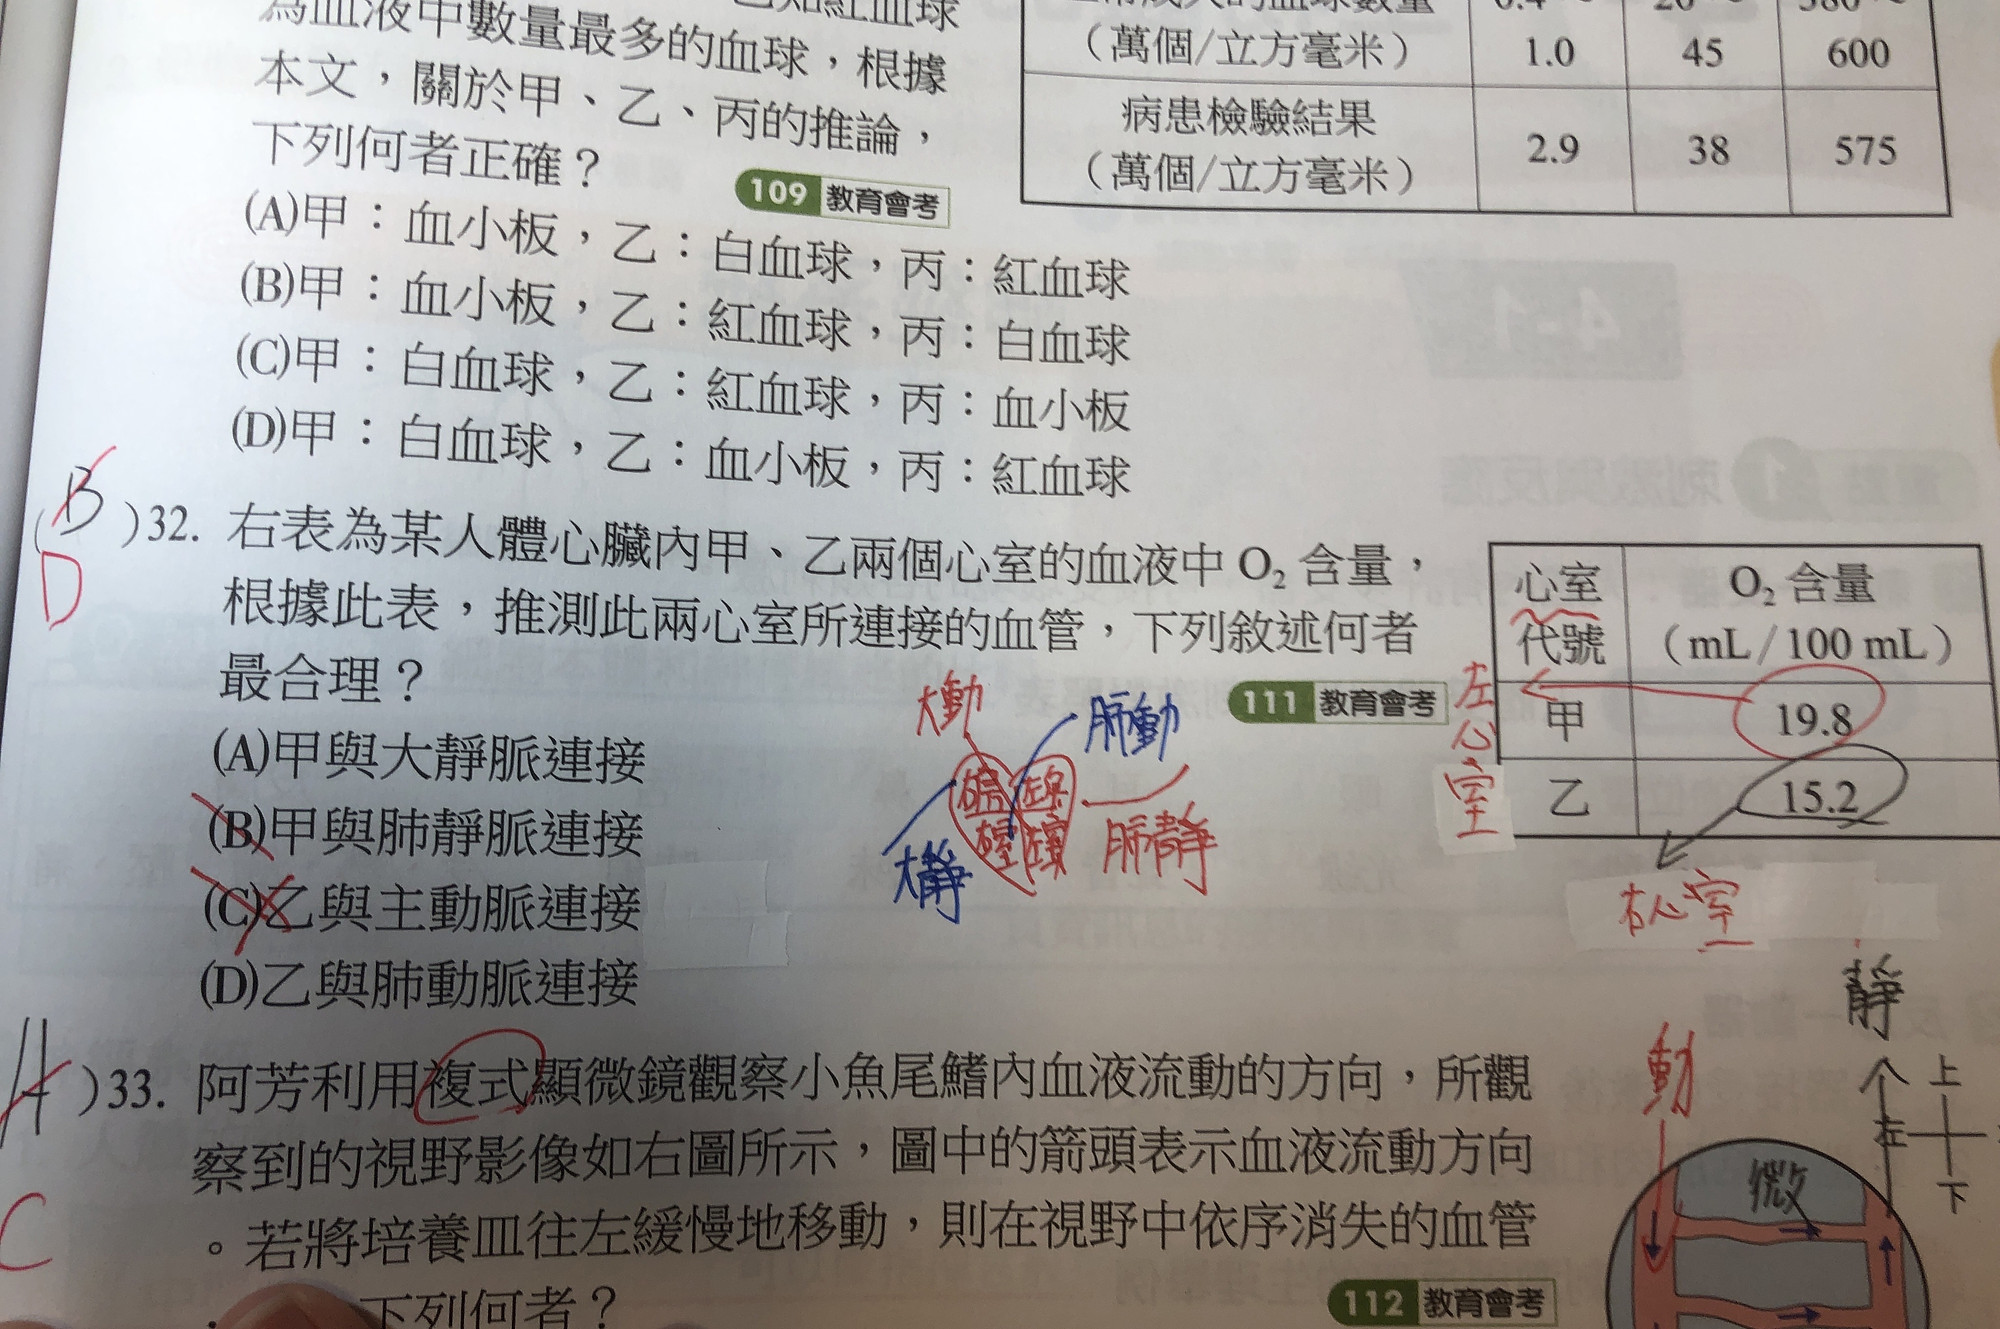 為血液中數量最多的血球，根據
本文，關於甲、乙、丙的推論，
下列何者正確？
109 教育會考
(A)甲：血小板，乙：白血球，丙：紅血球
(B)甲：血小板，乙：紅血球，丙：白血球
(C)甲：白血球，乙：紅血球，丙：血小板
(D)甲：白血球，乙：血小板，丙：紅血球
（萬個/立方毫米） 1.0 45 600
病患檢驗結果
（萬個/立方毫米） 2.9 38 575
B
D
( )32. 右表為某人體心臟內甲、乙兩個心室的血液中 O₂ 含量，
根據此表，推測此兩心室所連接的血管，下列敘述何者
最合理？
111 教育會考
(A)甲與大靜脈連接
(B)甲與肺靜脈連接
(C)乙與主動脈連接
(D)乙與肺動脈連接
大動
肺動
大靜
肺靜
心室代號 O₂ 含量（mL/100 mL）
甲 19.8
乙 15.2
左心室
右心室
A
C
)33. 阿芳利用複式顯微鏡觀察小魚尾鰭內血液流動的方向，所觀
察到的視野影像如右圖所示，圖中的箭頭表示血液流動方向
。若將培養皿往左緩慢地移動，則在視野中依序消失的血管
下列何者？
112 教育會考
動
靜
上
左
下
微